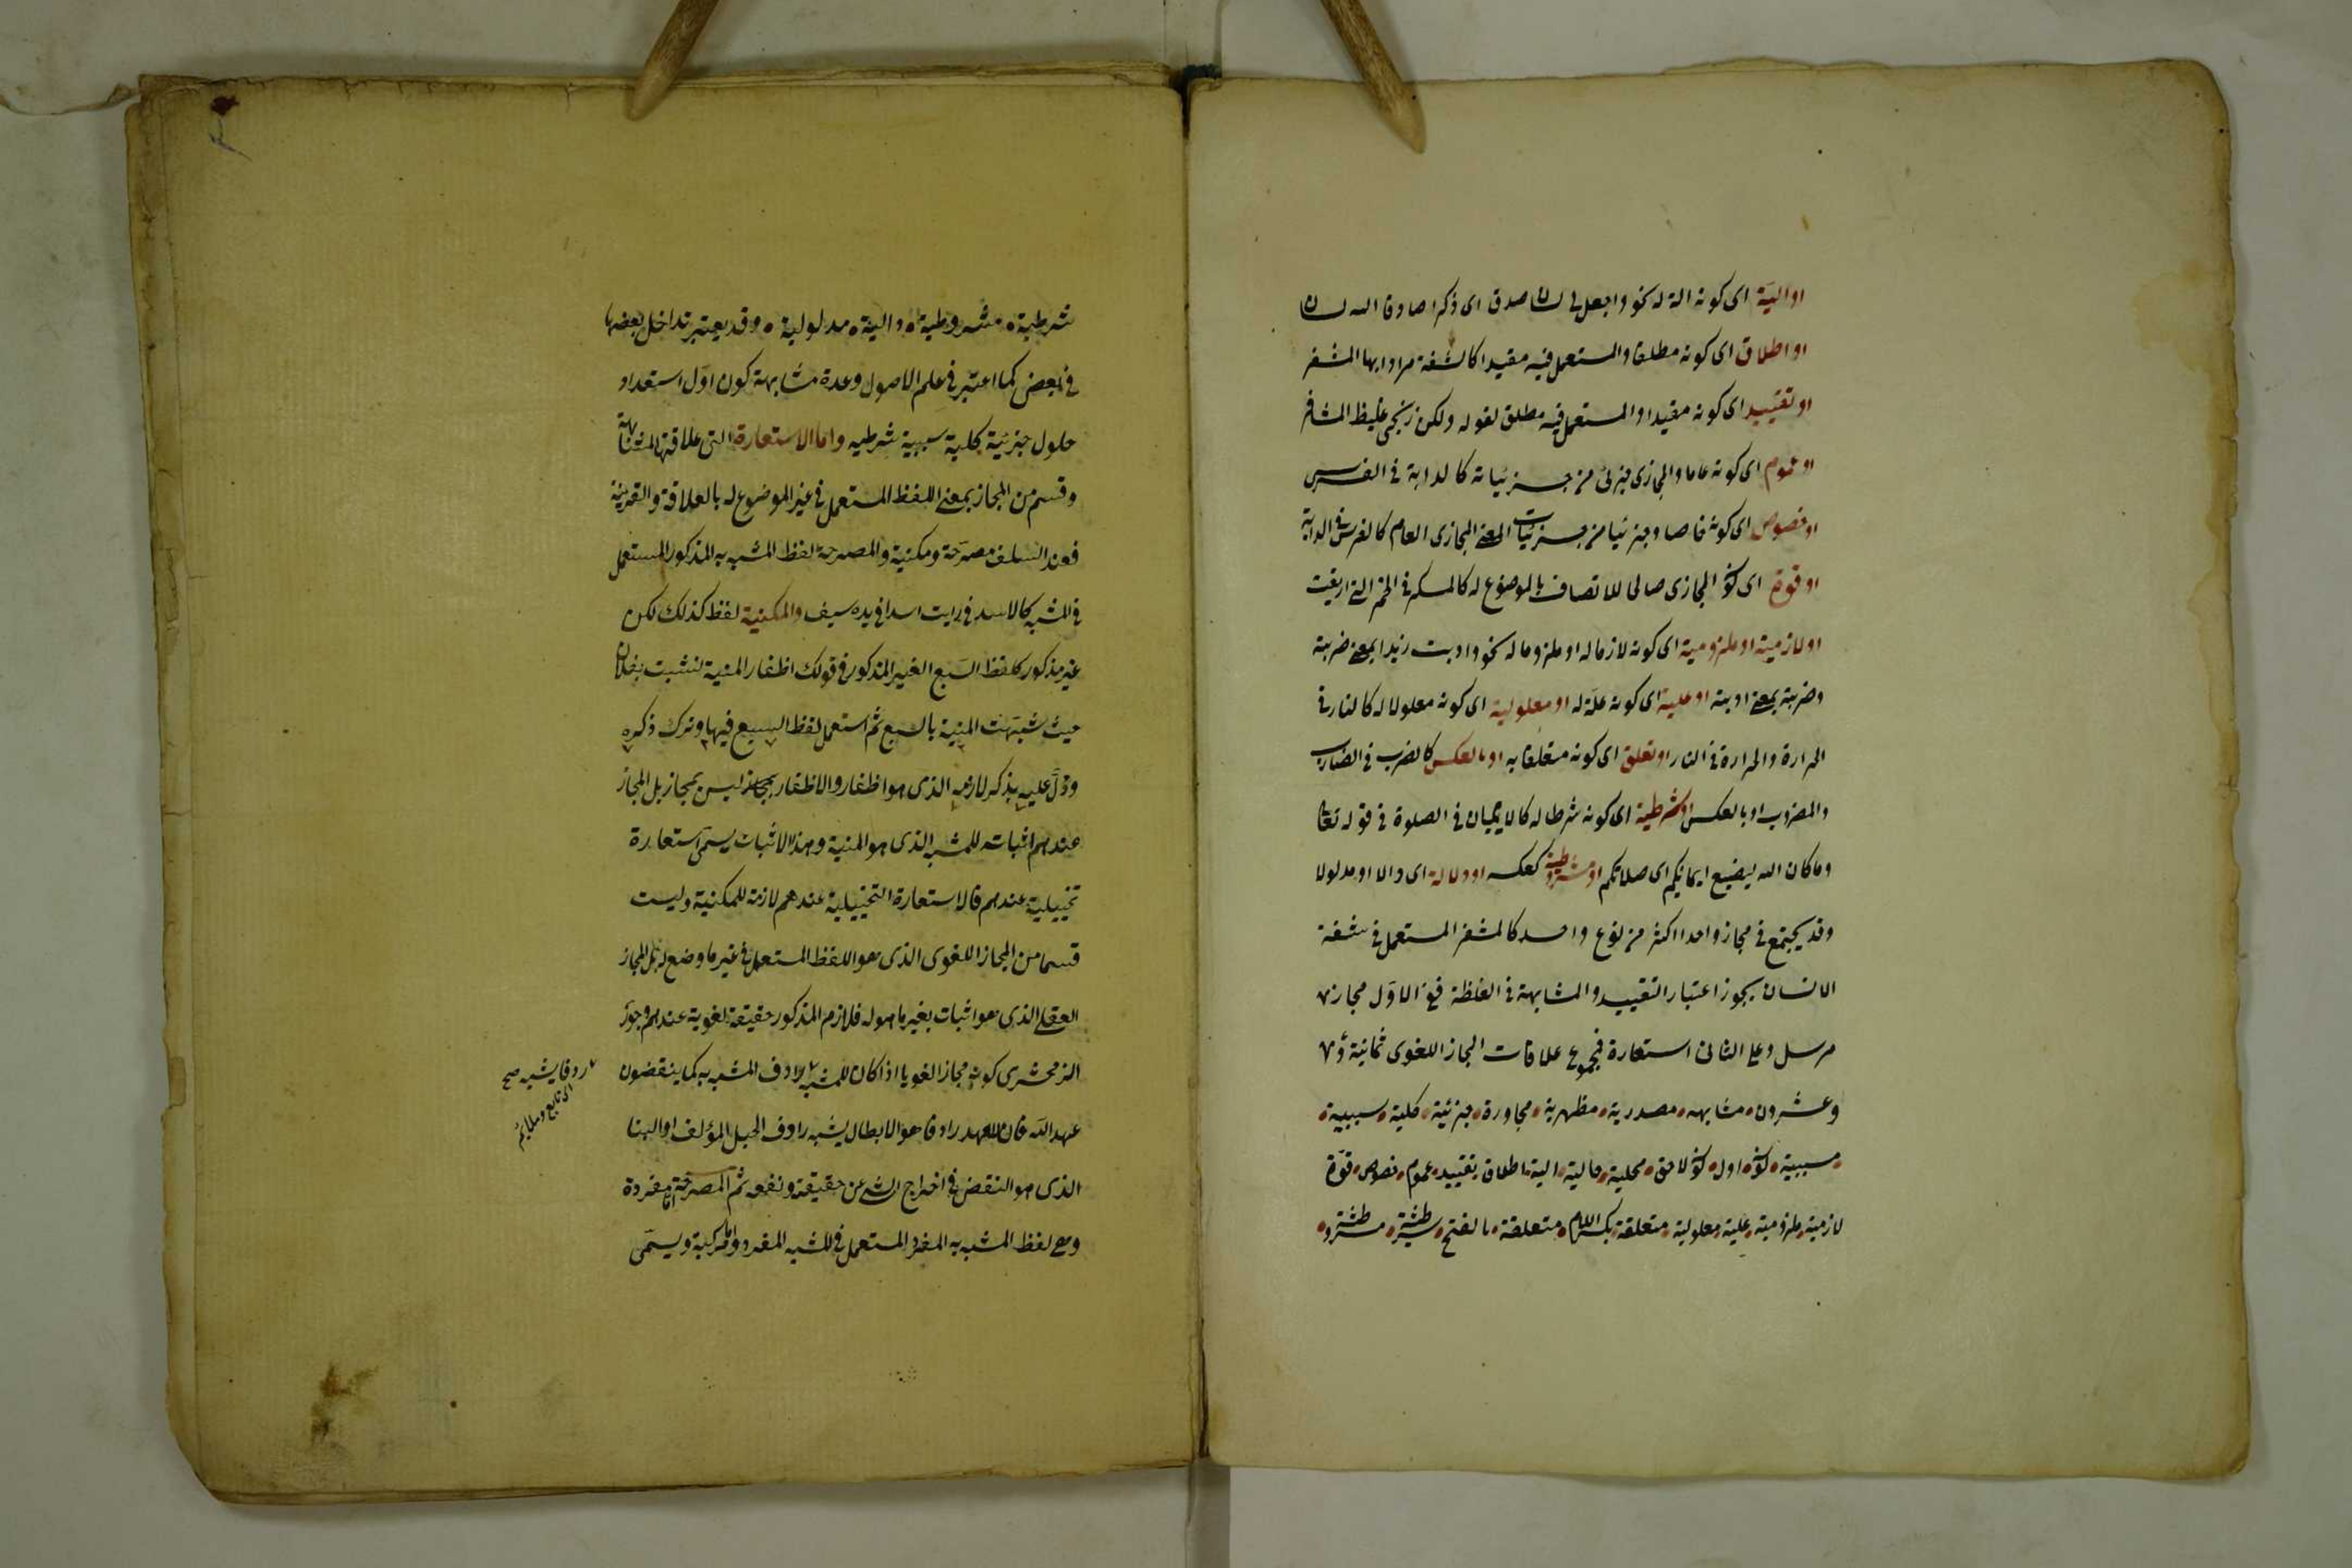 او الية اى كونه الة له نحو واجعل لى لسان صدق اى ذكرا صادقا اللسان
او اطلاق اى كونه مطلقا والمستعمل فيه مقيدا كالشفة مرادا بها المشفر
او تقييد اى كونه مقيدا والمستعمل فيه مطلق لقوله ولكن زنجى غليظ المشافر
او عموم اى كونه عاما والمجازى جزئى من جزئياته كالدابة فى الفرس
او خصوص اى كونه خاصا وجزئيا من جزئيات المعنى المجازى العام كالفرس فى الدابة
او قوة اى كون المجازى صالحا للاتصاف بالموضوع له كالمسكر فى الخمر التى اريقت
او لازمية او ملزومية اى كونه لازما له او ملزوما له نحو ادبت زيدا بمعنى ضربته
وضربته بمعنى ادبته او علية اى كونه علة له او معلولية اى كونه معلولا له كالنار فى
الحرارة والحرارة فى النار او تعلق اى كونه متعلقا به او بالعكس كالضرب فى الضارب
والمضروب او بالعكس او شرطية اى كونه شرطا له كالايمان فى الصلوة فى قوله تعا
وما كان الله ليضيع ايمانكم اى صلاتكم او مشروطية كعكسه او دلالة اى دالا او مدلولا
وقد يجتمع فى مجاز واحد اكثر من نوع واحد كالمشفر المستعمل فى شفة
الانسان يجوز اعتبار التقييد والمشابهة فى الغلظة فعلى الاول مجاز
مرسل وعلى الثانى استعارة فمجموع علاقات المجاز اللغوى ثمانية و
وعشرون مشابهه مصدرية مظهرية مجاورة جزئية كلية سببية
مسببية كون اول كون لاحق محلية حالية الية اطلاق تقييد عموم خصوص قوة
لازمية ملزومية علية معلولية متعلقة بكسر اللام متعلقة بالفتح شرطية مشروطية
شرطية مشروطية دالية مدلولية وقد يعتبر تداخل بعضها
فى بعض كما اعتبر فى علم الاصول وعدة مشابهة كون اول استعداد
حلول جزئية كلية سببية شرطيه واما الاستعارة التى علاقتها المشابهة
وقسم من المجاز بمعنى اللفظ المستعمل فى غير الموضوع له بالعلاقة والقرينة
فعند السلف مصرحة ومكنية والمصرحة لفظ المشبه به المذكور المستعمل
فى المشبه كالاسد فى رايت اسدا فى يده سيف والمكنية لفظ كذلك لكن
غير مذكور كلفظ السبع الغير المذكور فى قولك اظفار المنية نشبت بفلان
حيث شبهت المنية بالسبع ثم استعمل لفظ السبع فيها وترك ذكره
ودل عليه بذكر لازمه الذى هو اظفار والاظفار ليس بمجاز بل المجاز
عندهم اثباته للمشبه الذى هو المنية وهذا الاثبات يسمى استعارة
تخييلية عندهم فالاستعارة التخييلية عندهم لازمة للمكنية وليست
قسما من المجاز اللغوى الذى هو اللفظ المستعمل فى غير ما وضع له بل المجاز
العقلى الذى هو اثبات بغير ما هو له فلازم المذكور حقيقة لغوية عندهم وجوز
الزمخشرى كونه مجازا لغويا اذا كان للمشبه رادف المشبه به كما ينقضون
عهد الله فان للعهد رادفا هو الابطال يشبه رادف الحبل المؤلف او البنا
الذى هو النقض فى اخراج الشئ عن حقيقته ونفعه ثم المصرحة اما مفردة
وهى لفظ المشبه به المفرد المستعمل فى المشبه المفرد واما مركبة ويسمى
ردفا يشبه صح
اى تابع وملايم